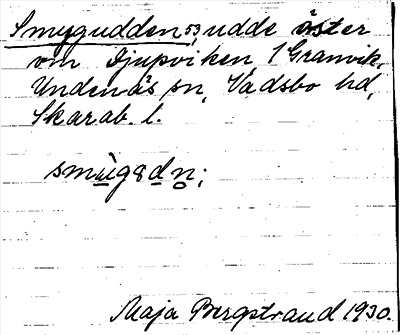 Smygudden, udde öster
om Djupviken i Granvik,
Undenäs sn, Vadsbo hd,
Skarab. l.
smỳg8dn;
Maja Bergstrand 1930.